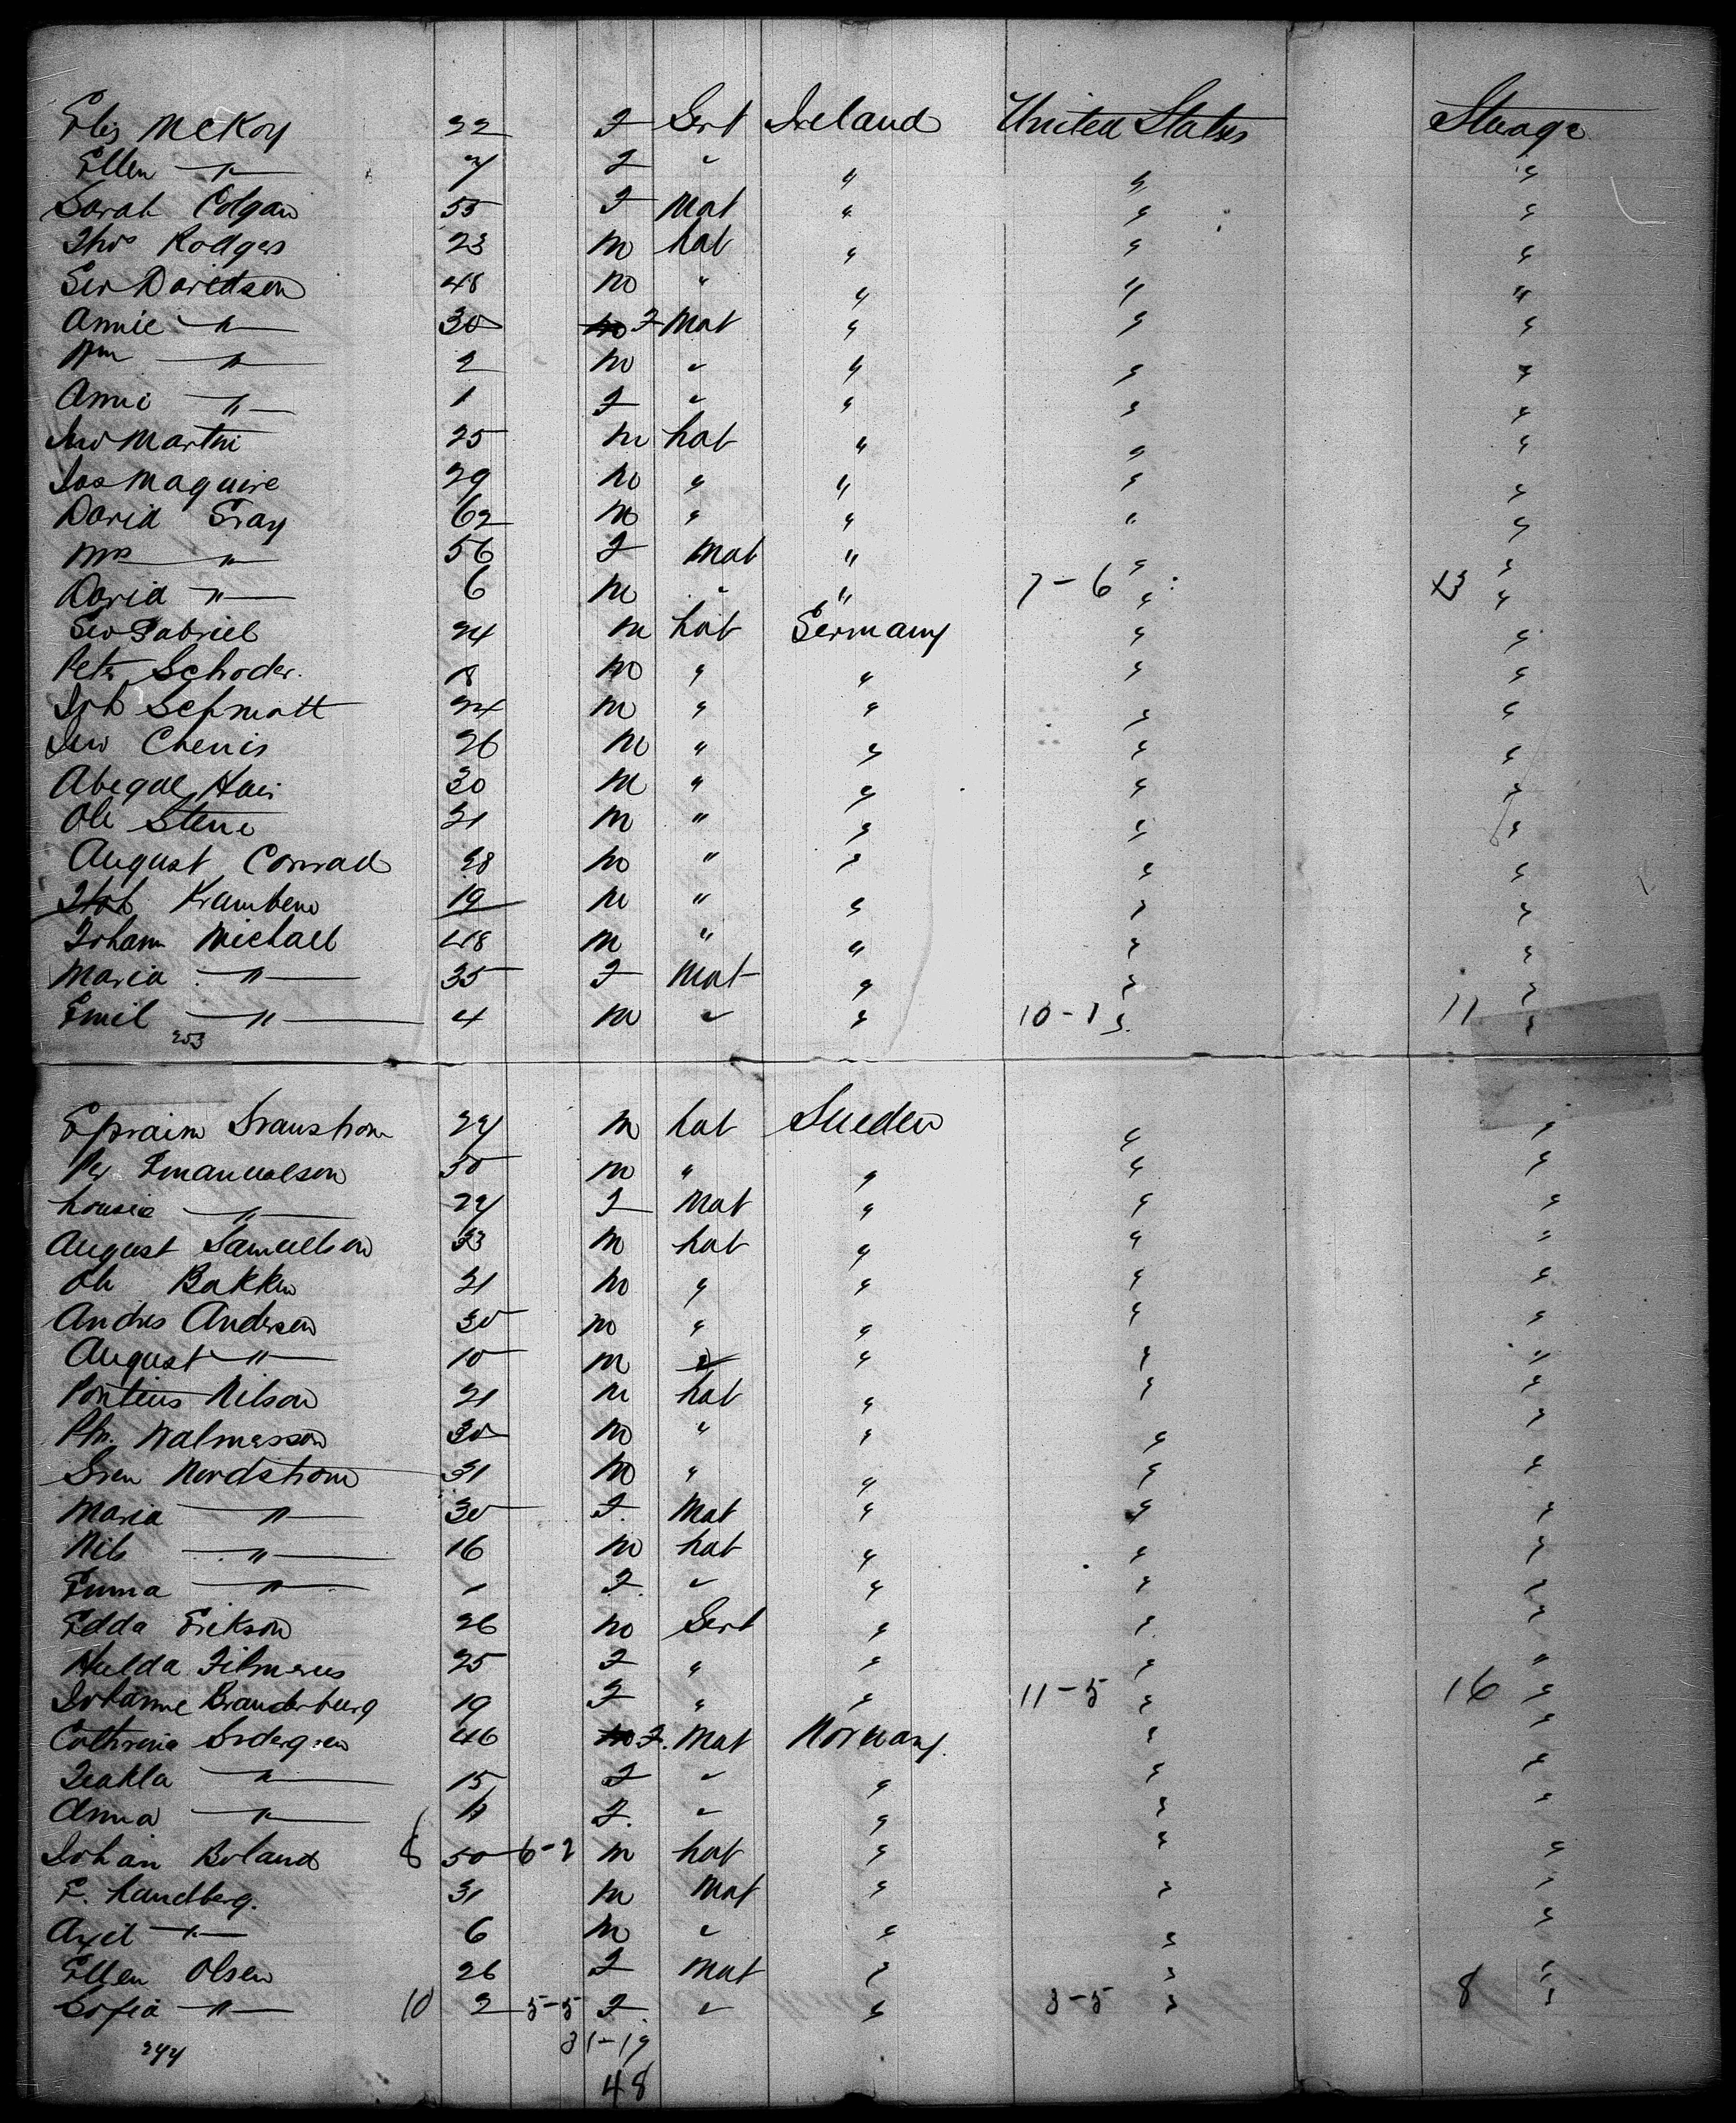 Eliz McKoy 22 F Sert Ireland United States Steerage
Ellen " 7 F " " " "
Sarah Colgan 55 F Mat " " "
Thos Rodgers 23 m Lab " " "
Geo Davidson 48 m " " " "
Annie " 30 F Mat " " "
Wm " 2 m " " " "
Annie " 1 F " " " "
Jno Martin 25 m Lab " " "
Jas Maguire 29 m " " " "
David Gray 62 m " " " "
Mrs " 56 F Mat " " "
David " 6 m " " 7-6 " 13 "
Geo Gabriel 24 m Lab Germany " "
Peter Schoder 18 m " " " "
Joh Schmatt 24 m " " " "
Jno 26 m " " " "
30 m " " " "
Ole Stene 21 m " " " "
August Conrad 28 m " " " "
19 m " " " "
Johann Michael 48 m " " " "
Maria " 35 F Mat " " "
Emil " 4 m " " 10-1 " 11 "
253
Epraim 27 m Lab Sweden " "
Per Emanuelson 30 m " " " "
Lousia " 27 F Mat " " "
August Samuelson 33 m Lab " " "
Ole Bakken 21 m " " " "
Andres Andersen 30 m " " " "
August " 10 m " " " "
Pontius Nilson 21 m Lab " " "
Malmesson 30 m " " " "
Sven Nordstrom 31 m " " " "
Maria " 30 F Mat " " "
Nils " 16 m Lab " " "
Emma " 1 F " " " "
Edda Erikson 26 m Sert " " "
Hulda 25 F " " " "
Johanne Branderburg 19 F " " 11-5 " 16 "
Cathrina Sodergren 46 F. Mat Norway " "
Teakla " 15 F " " " "
Anna " 11 F. " " " "
Johan Boland 8 50 6-2 m Lab " " "
E. Landberg. 31 m Mat " " "
Axel " 6 m " " " "
Ellen Olsen 26 F Mat " " "
Sofia " 10 2 5-5 F " " 8-5 " 8 "
277 31-19
48